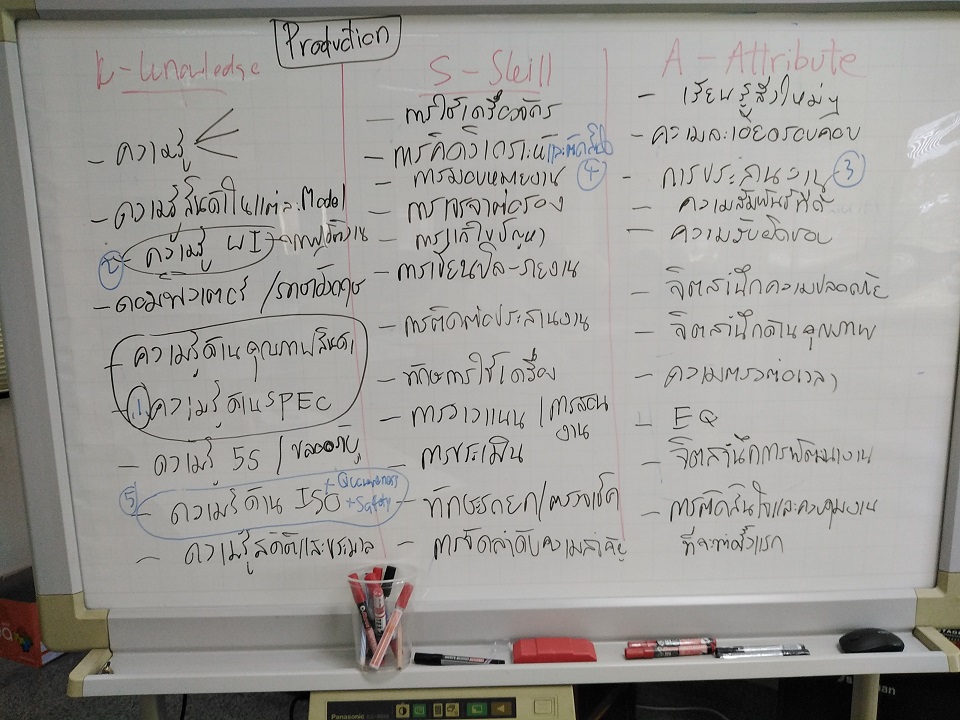 Production
K - Knowledge
- ความรู้
- ความรู้สินค้าในแต่ละ Model
2 - ความรู้ WI
- คอมพิวเตอร์ / ภาษาอังกฤษ
- ความรู้ด้านคุณภาพสินค้า
- 1. ความรู้ด้าน SPEC
- ความรู้ 5S /
5 - ความรู้ด้าน ISO
+ Safety
- ความรู้สถิติและ
S - Skill
- การใช้เครื่องจักร
- การคิดวิเคราะห์และตัดสินใจ 4
- การมอบหมายงาน
- การเจรจาต่อรอง
- การแก้ไขปัญหา
- การเขียนและรายงาน
- การติดต่อประสานงาน
- ทักษะการใช้เครื่อง
- การวางแผน / การสอนงาน
- การประเมิน
- ทักษะ
- การจัดลำดับความสำคัญ
A - Attribute
- เรียนรู้สิ่งใหม่ๆ
- ความละเอียดรอบคอบ
- การประสานงาน 3
- ความสัมพันธ์ที่ดี
- ความรับผิดชอบ
- จิตสำนึกความปลอดภัย
- จิตสำนึกด้านคุณภาพ
- ความตรงต่อเวลา
- EQ
- จิตสำนึกการพัฒนางาน
- การตัดสินใจและควบคุมงาน
ครั้งแรก
Panasonic